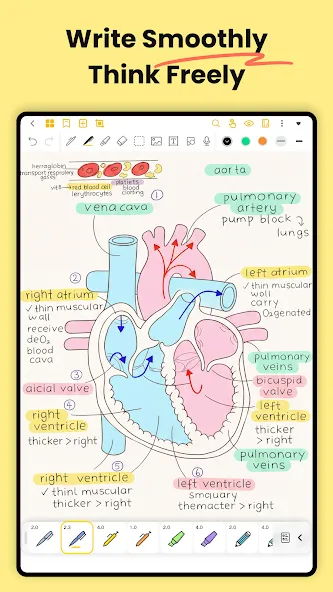 Write Smoothly
Think Freely
hemoglobin
transport respiratory
gases
platelets
red blood cell
lerythrocytes
blood
clotting
①
aorta
vena cava
pulmonary
artery
pump block
lungs
②
left atrium
✓ thin muscular
woll
carry
O₂genated
right atrium
✓ thin muscular
wall
receive
deO₂
blood
cava
③
aicial valve
pulmonary
veins
bicuspid
valve
④
right
ventricle
thicker > right
left
ventricle
thicker
> right
pulmonary
veins
⑤
right ventricle
✓ thinl muscular
thicker > right
⑥
left ventricle
smquary
themacter > right
2.0
2.3
4.0
1.0
2.0
4.0
2.0
4.0